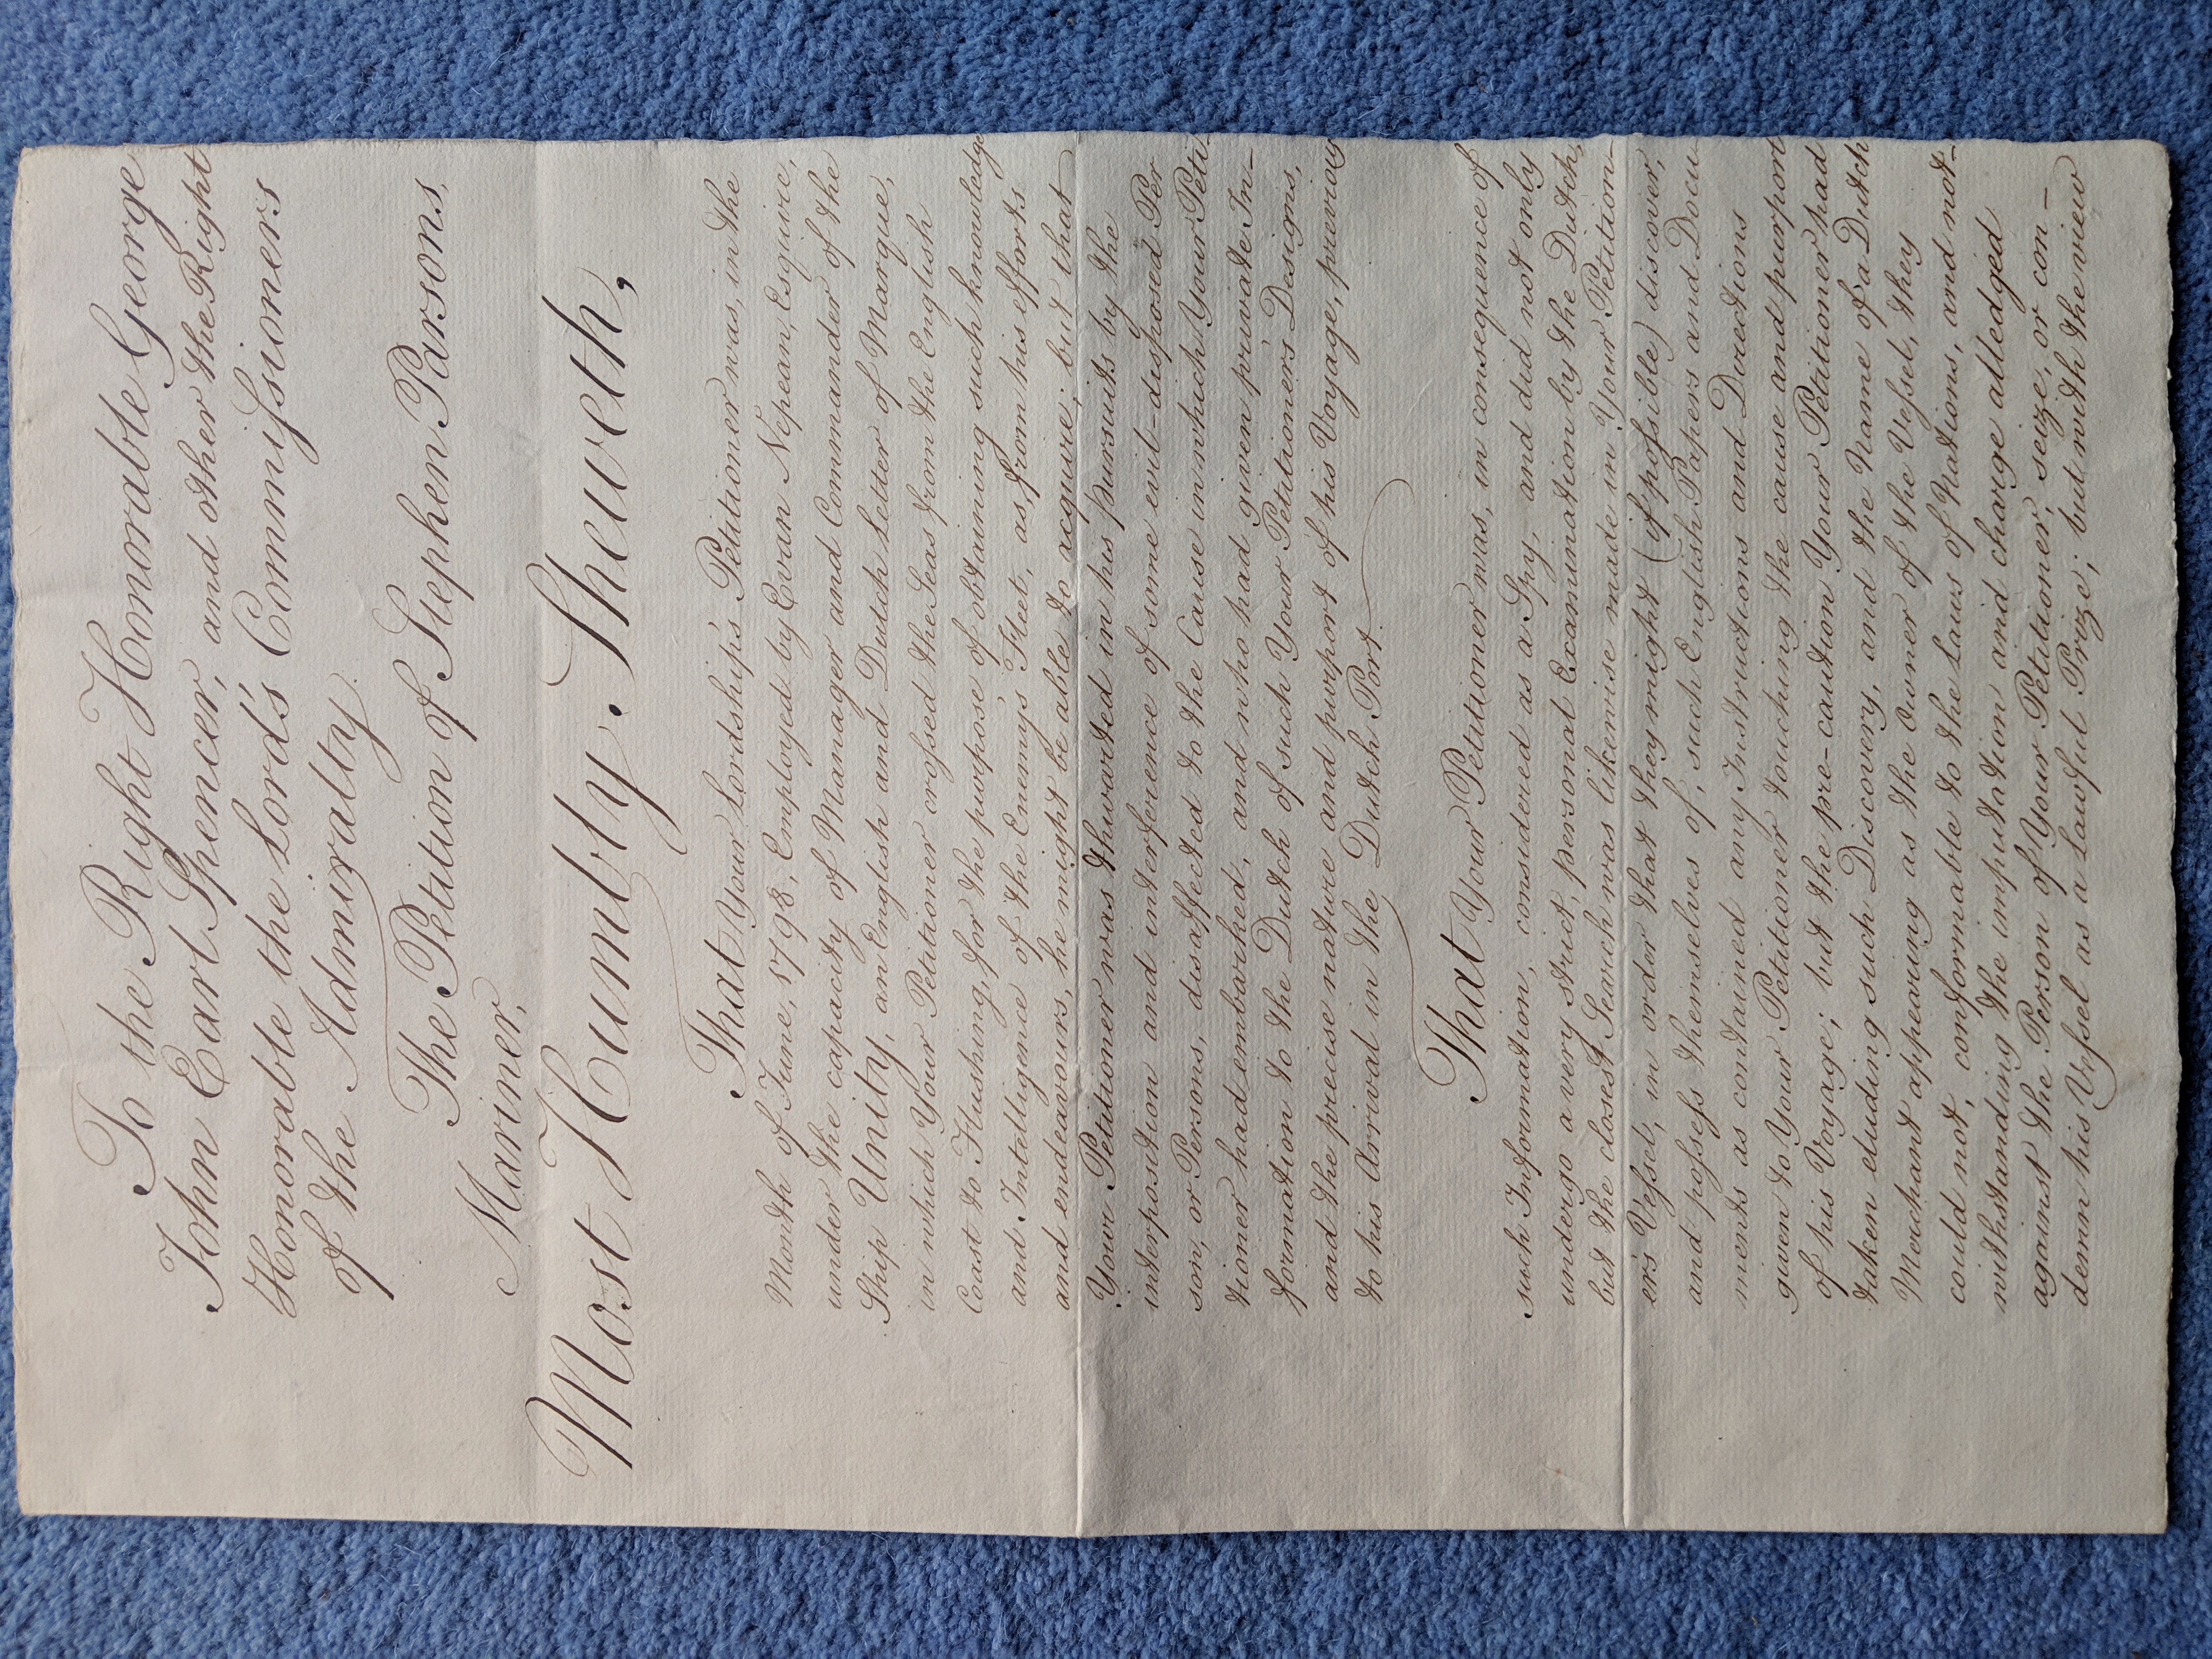 To the Right Honorable George
John Earl Spencer, and other the Right
Honorable the Lord's Commissioners
of the Admiralty.
The Petition of Stephen Parsons,
Mariner,
Most Humbly Sheweth,
That Your Lordship's Petitioner was, in the
Month of June, 1798, Employed by Evan Nepean, Esquire,
under the capacity of Manager and Commander of the
Ship Unity, an English and Dutch Letter of Marque,
in which Your Petitioner crossed the Seas from the English
Coast to Flushing, for the purpose of obtaining such knowledge
and Intelligence of the Enemy's Fleet, as, from his efforts
and endeavours, he might be able to acquire; but that
Your Petitioner was thwarted in his pursuits by the
interposition and interference of some evil-disposed Per
son, or Persons, disaffected to the Cause in which Your Peti-
tioner had embarked, and who had given private In-
formation to the Dutch of such Your Petitioner's Designs,
and the precise nature and purport of his Voyage, previous
to his Arrival in the Dutch Port.
That Your Petitioner was, in consequence of
such Information, considered as a Spy, and did not only
undergo a very strict, personal Examination by the Dutch,
but the closest Search was likewise made in Your Petition-
er's Vessel, in order that they might (if possible) discover,
and possess themselves of, such English Papers and Docu-
ments as contained any Instructions and Directions
given to Your Petitioner touching the cause and purport
of his Voyage; but the pre-caution Your Petitioner had
taken eluding such Discovery, and the Name of a Dutch
Merchant appearing as the Owner of the Vessel, they
could not, conformable to the Laws of Nations, and not-
withstanding the imputation and charge alledged
against the Person of Your Petitioner, seize, or con-
demn his Vessel as a Lawful Prize; but with the view